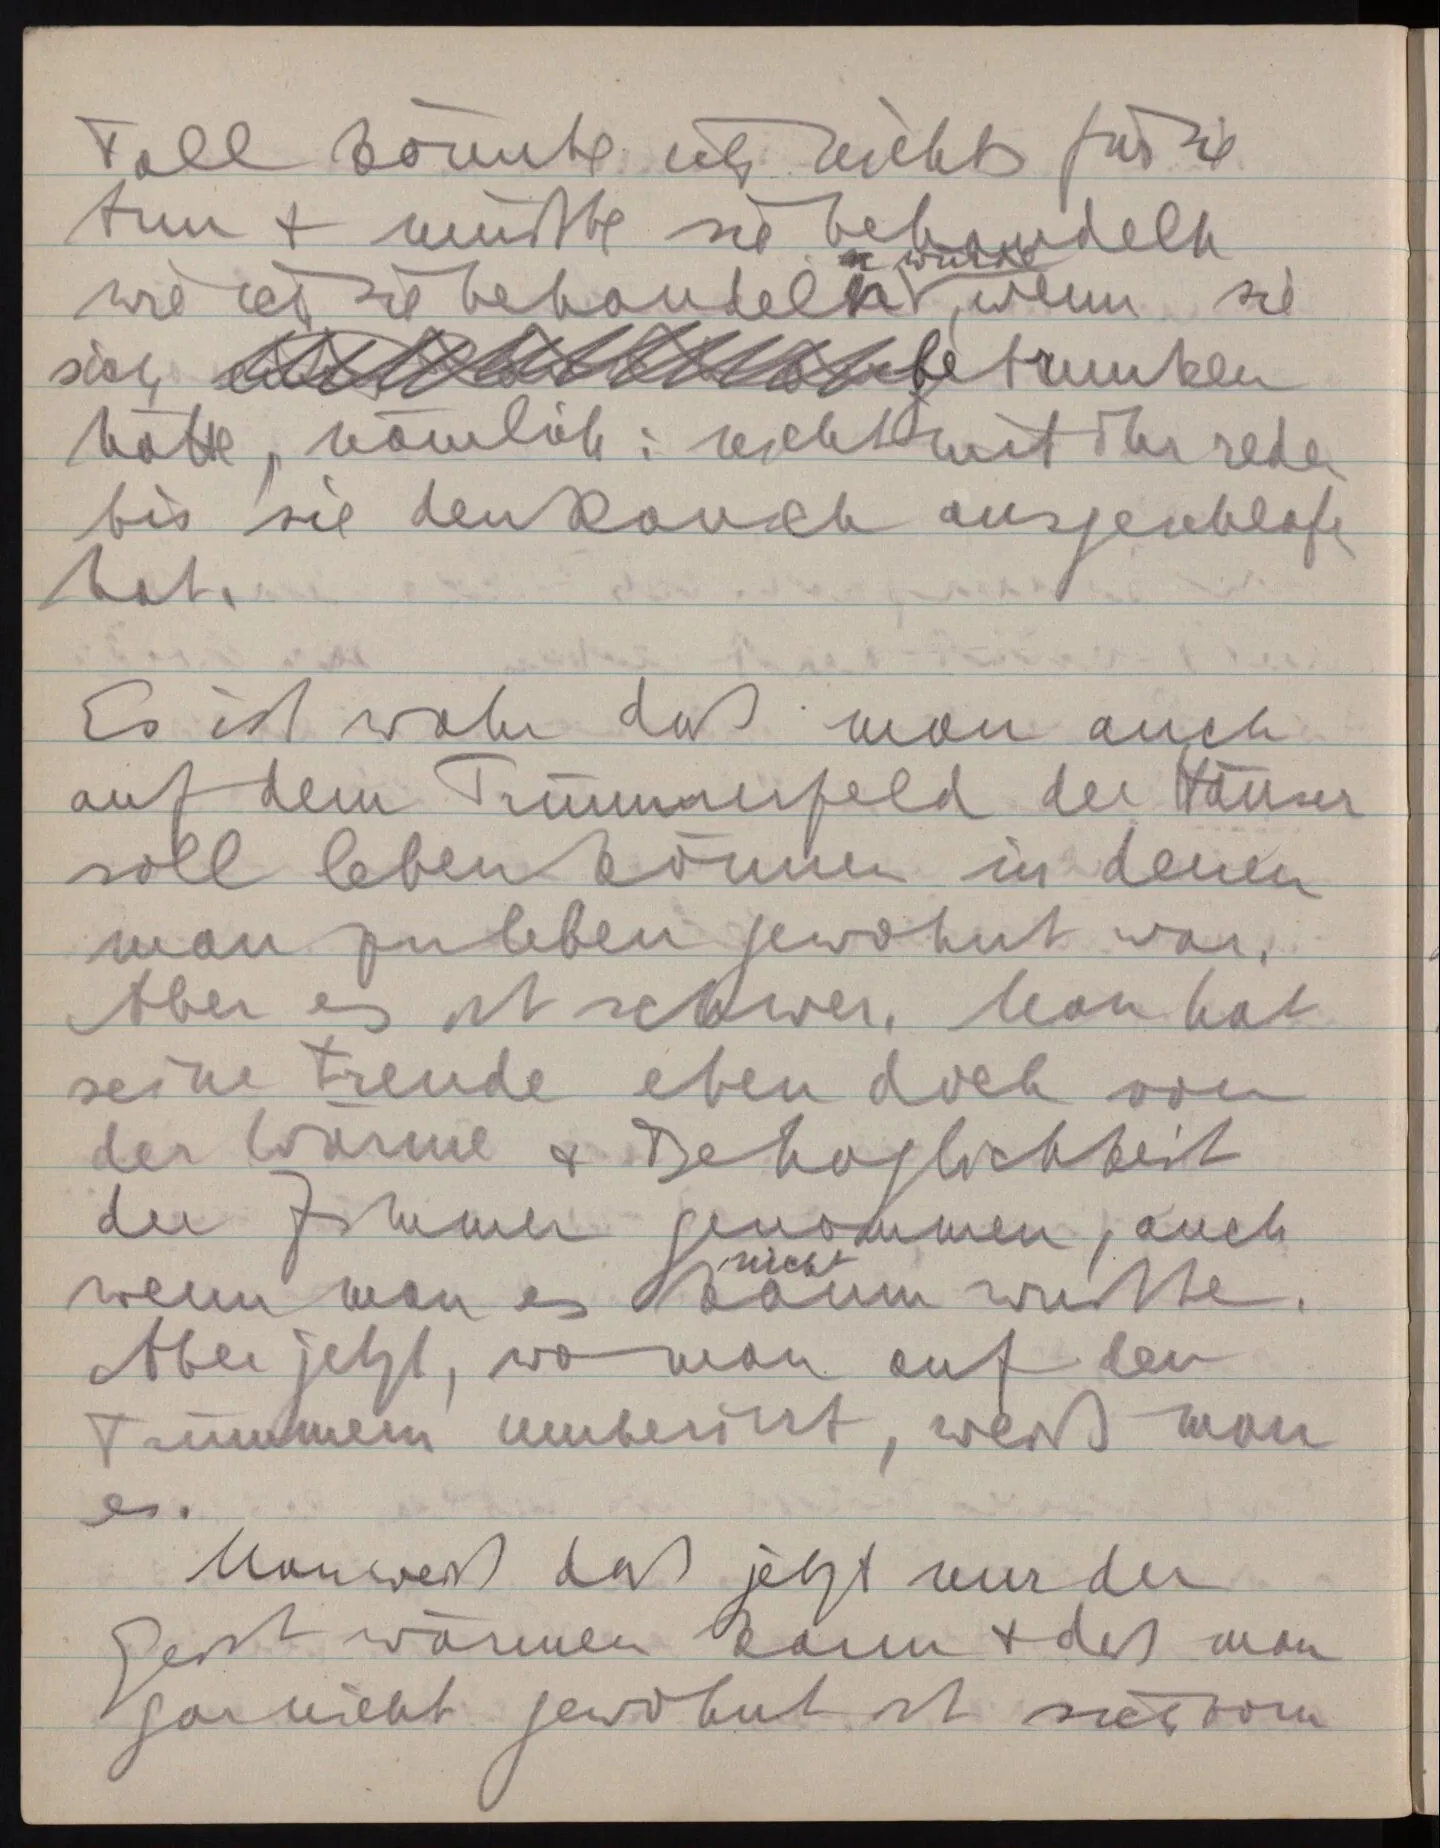 Fall könnte ich nichts für sie
tun + müßte sie behandeln
wie ich sie behandeln würde, wenn sie
sich betrunken
hätte, nämlich: nicht mit ihr reden
bis sie den Rausch ausgeschlafen
hat.
Es ist wahr daß man auch
auf dem Trümmerfeld der Häuser
soll leben können in denen
man zu leben gewohnt war.
Aber es ist schwer. Man hat
seine Freude eben doch von
der Wärme + Behaglichkeit
der Zimmer genommen, auch
nicht
wenn man es kaum wußte.
Aber jetzt, wo man auf den
Trümmern umherirrt, weiß man
es.
Man weiß daß jetzt nur der
Geist wärmen kann + daß man
gar nicht gewöhnt ist sich vom